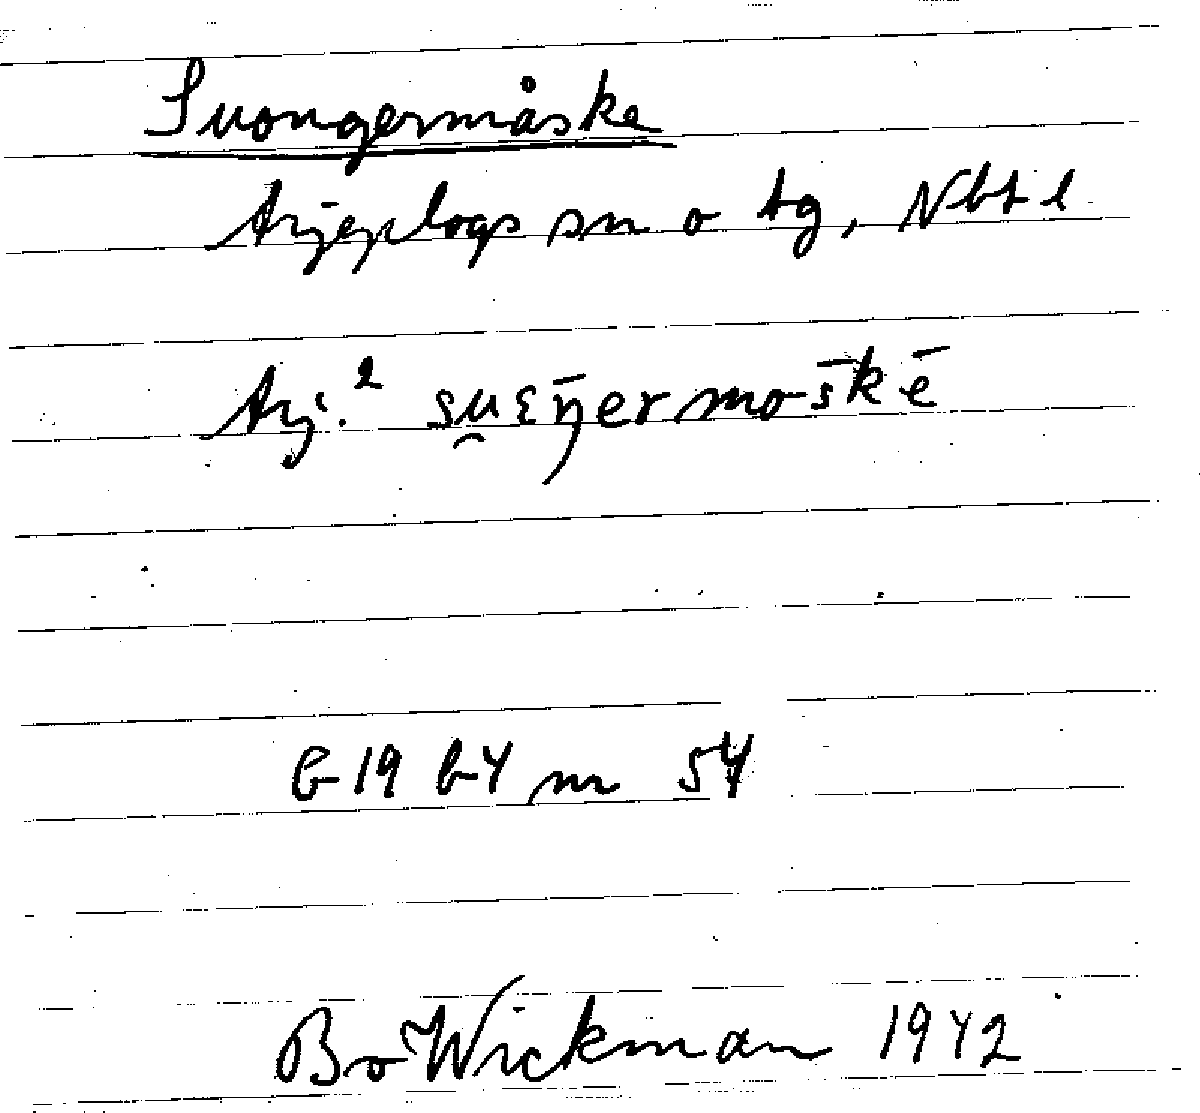 Suongermåske
Arjeplogs sn o tg, Nbt l
Arj.² su̯ɛŋ̄ermos̄kē
G 19 b 4 nr 54
Bo Wickman 1942